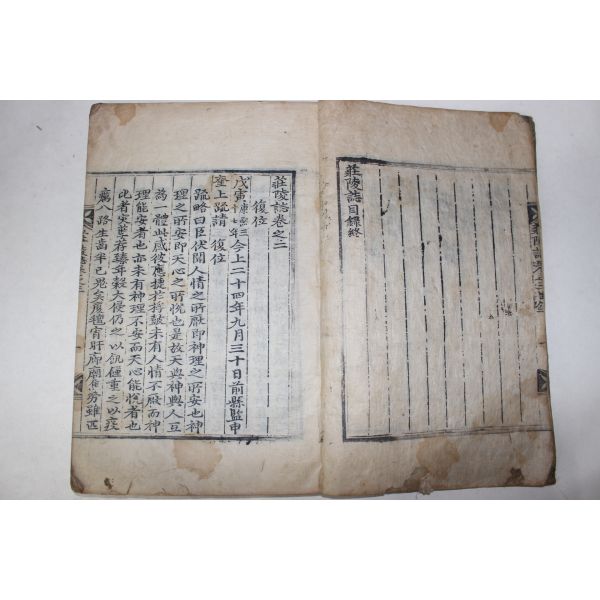 莊陵誌目錄終
莊陵誌卷之二
復位
戊寅康熙三十七年今上二十四年九月三十日前縣監申
奎上疏請 復位
疏略曰臣伏聞人情之所厭即神理之所安也神
理之所安即天心之所悅也是故天與神與人互
為一體此感彼應捷於桴鼓未有人情不厭而神
理能安者也亦未有神理不安而天心能悅者也
此者灾荐臻年穀大侵仍之以飢饉重之以疫
癘八路生高半已死矣廈氊宵旰廊廟焦勞雖匹